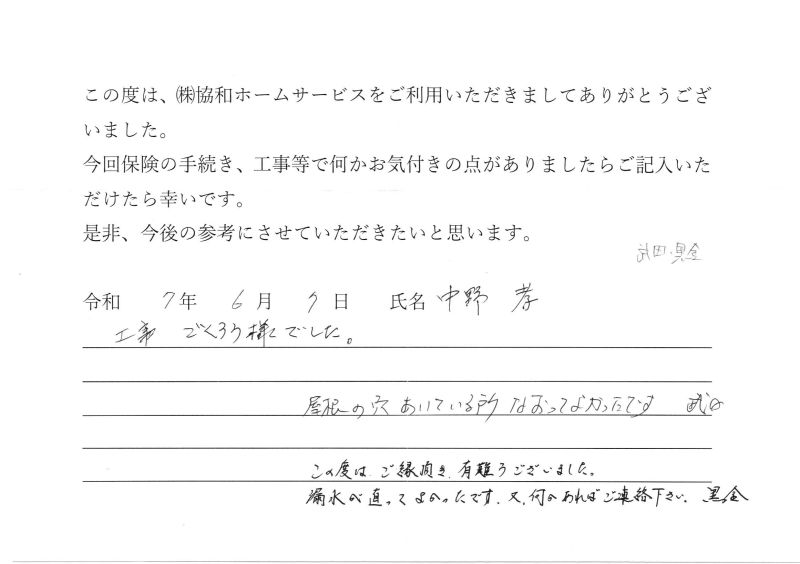 この度は、㈱協和ホームサービスをご利用いただきましてありがとうござ
いました。
今回保険の手続き、工事等で何かお気付きの点がありましたらご記入いた
だけたら幸いです。
是非、今後の参考にさせていただきたいと思います。
武田・黒金
令和 7年 6月 9日 氏名 中野 孝
工事 ごくろう様でした。
屋根の穴 あいている所 なおってよかったです 武田
この度は、ご縁頂き、有難うございました。
漏水が直ってよかったです。又、何かあればご連絡下さい。 黒金